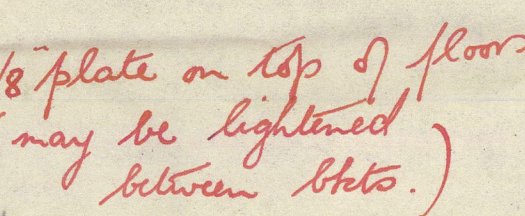 /8" plate on top of floors
(may be lightened
between bkts.)